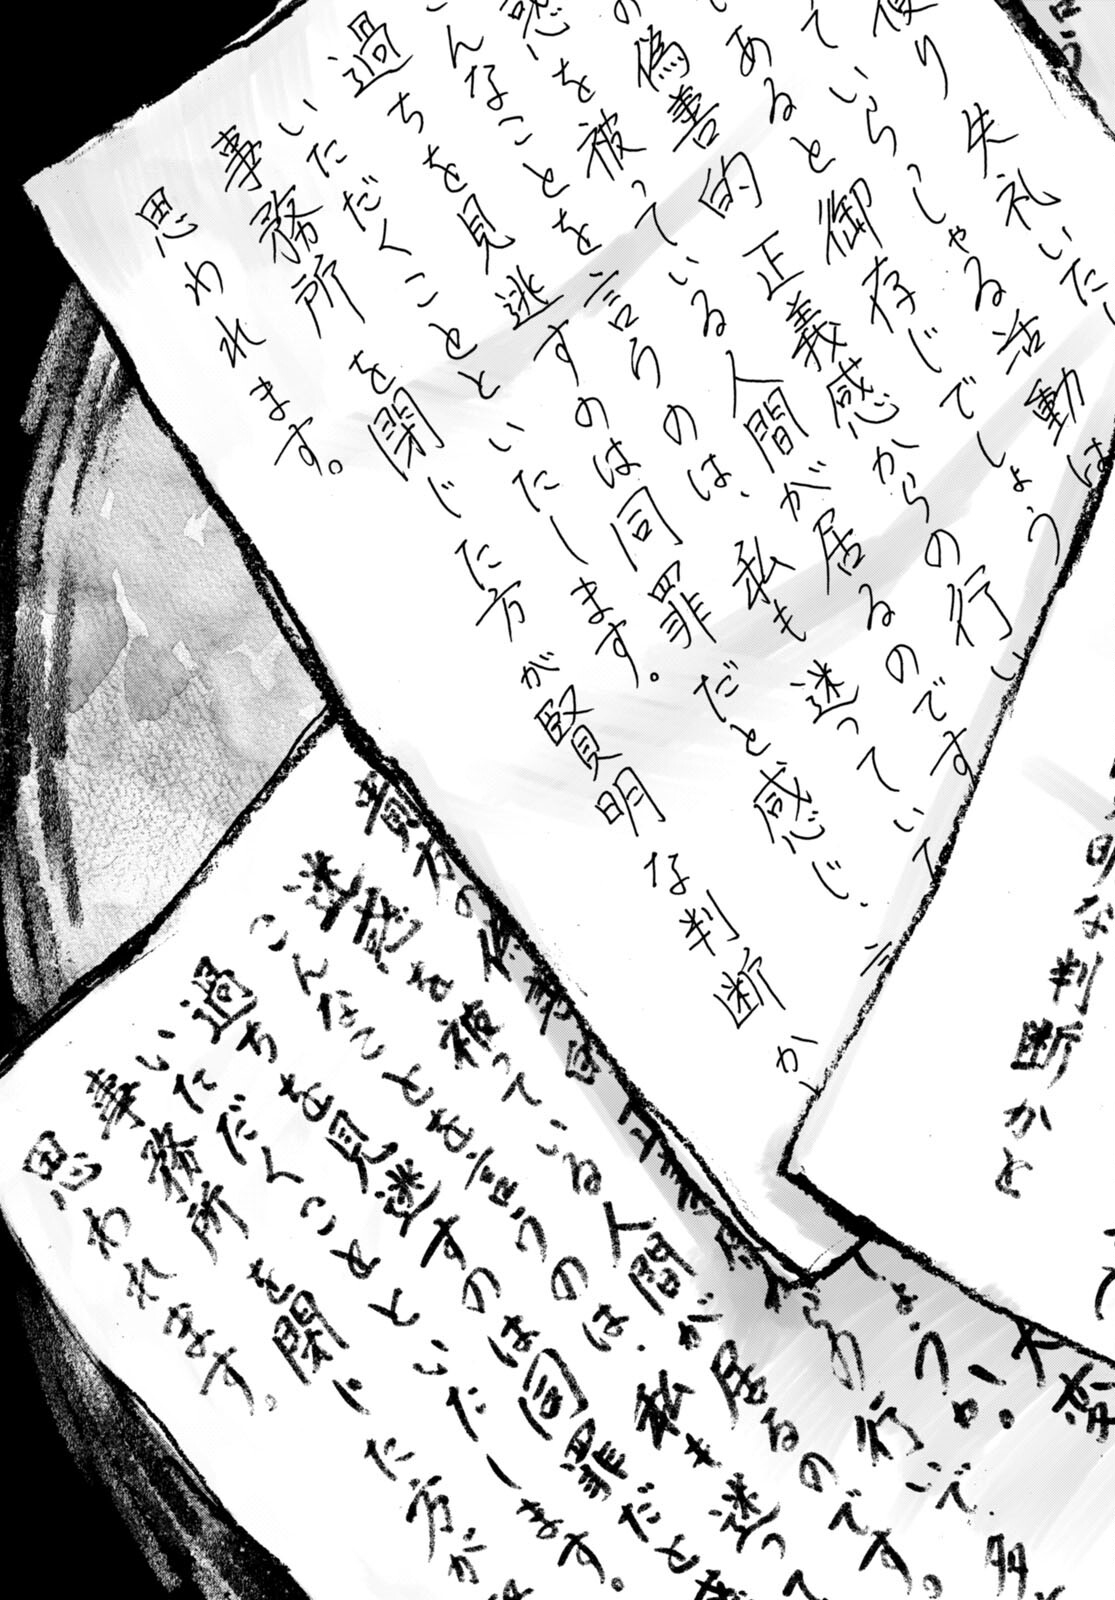 便り失礼いた
ていらっしゃる活動は
であると御存じでしょう
の偽善的正義感からの行い
惑を被っている人間が居るのです
こんなことを言うのは、私も迷ってい
過ちを見逃すのは同罪だと感じ、
いただくことといたします。
事務所を閉じた方が賢明な判断か
思われます。
明な判断かと
ょうか。
貴方の偽善的正義感からの行いで、多
迷惑を被っている人間が居るのです。
こんなことを言うのは、私も迷って
過ちを見逃すのは同罪だと
いただくことといたします。
事務所を閉じた方が
思われます。